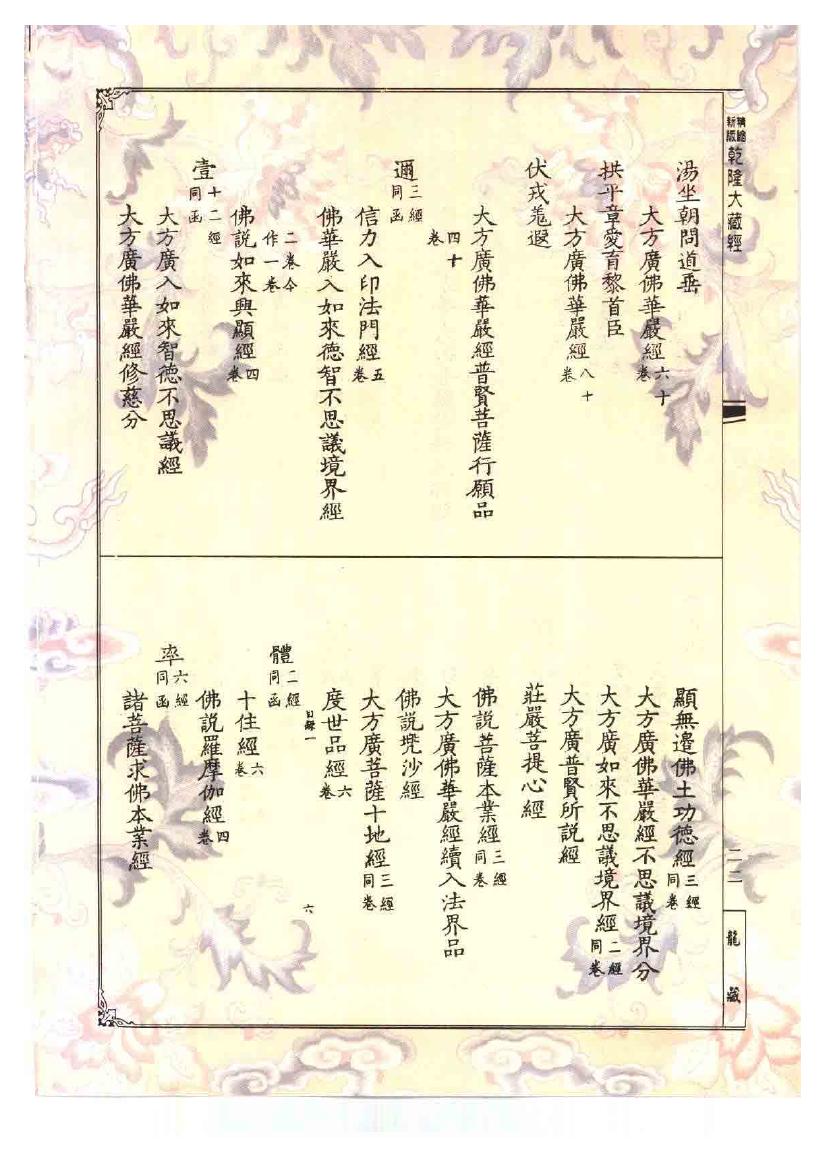 精縮新版 乾隆大藏經
湯坐朝問道垂
大方廣佛華嚴經六十卷
拱平章愛育黎首臣
大方廣佛華嚴經八十卷
伏戎羗遐
大方廣佛華嚴經普賢菩薩行願品
四十卷
邇三經同函
信力入印法門經五卷
佛華嚴入如來德智不思議境界經
二卷今作一卷
佛說如來興顯經四卷
壹十二經同函
大方廣入如來智德不思議經
大方廣佛華嚴經修慈分
顯無邊佛土功德經三經同卷
大方廣佛華嚴經不思議境界分
大方廣如來不思議境界經二經同卷
大方廣普賢所說經
莊嚴菩提心經
佛說菩薩本業經三經同卷
大方廣佛華嚴經續入法界品
佛說兜沙經
大方廣菩薩十地經三經同卷
度世品經六卷
目錄一 六
體二經同函
十住經六卷
佛說羅摩伽經四卷
率六經同函
諸菩薩求佛本業經
二二
龍藏